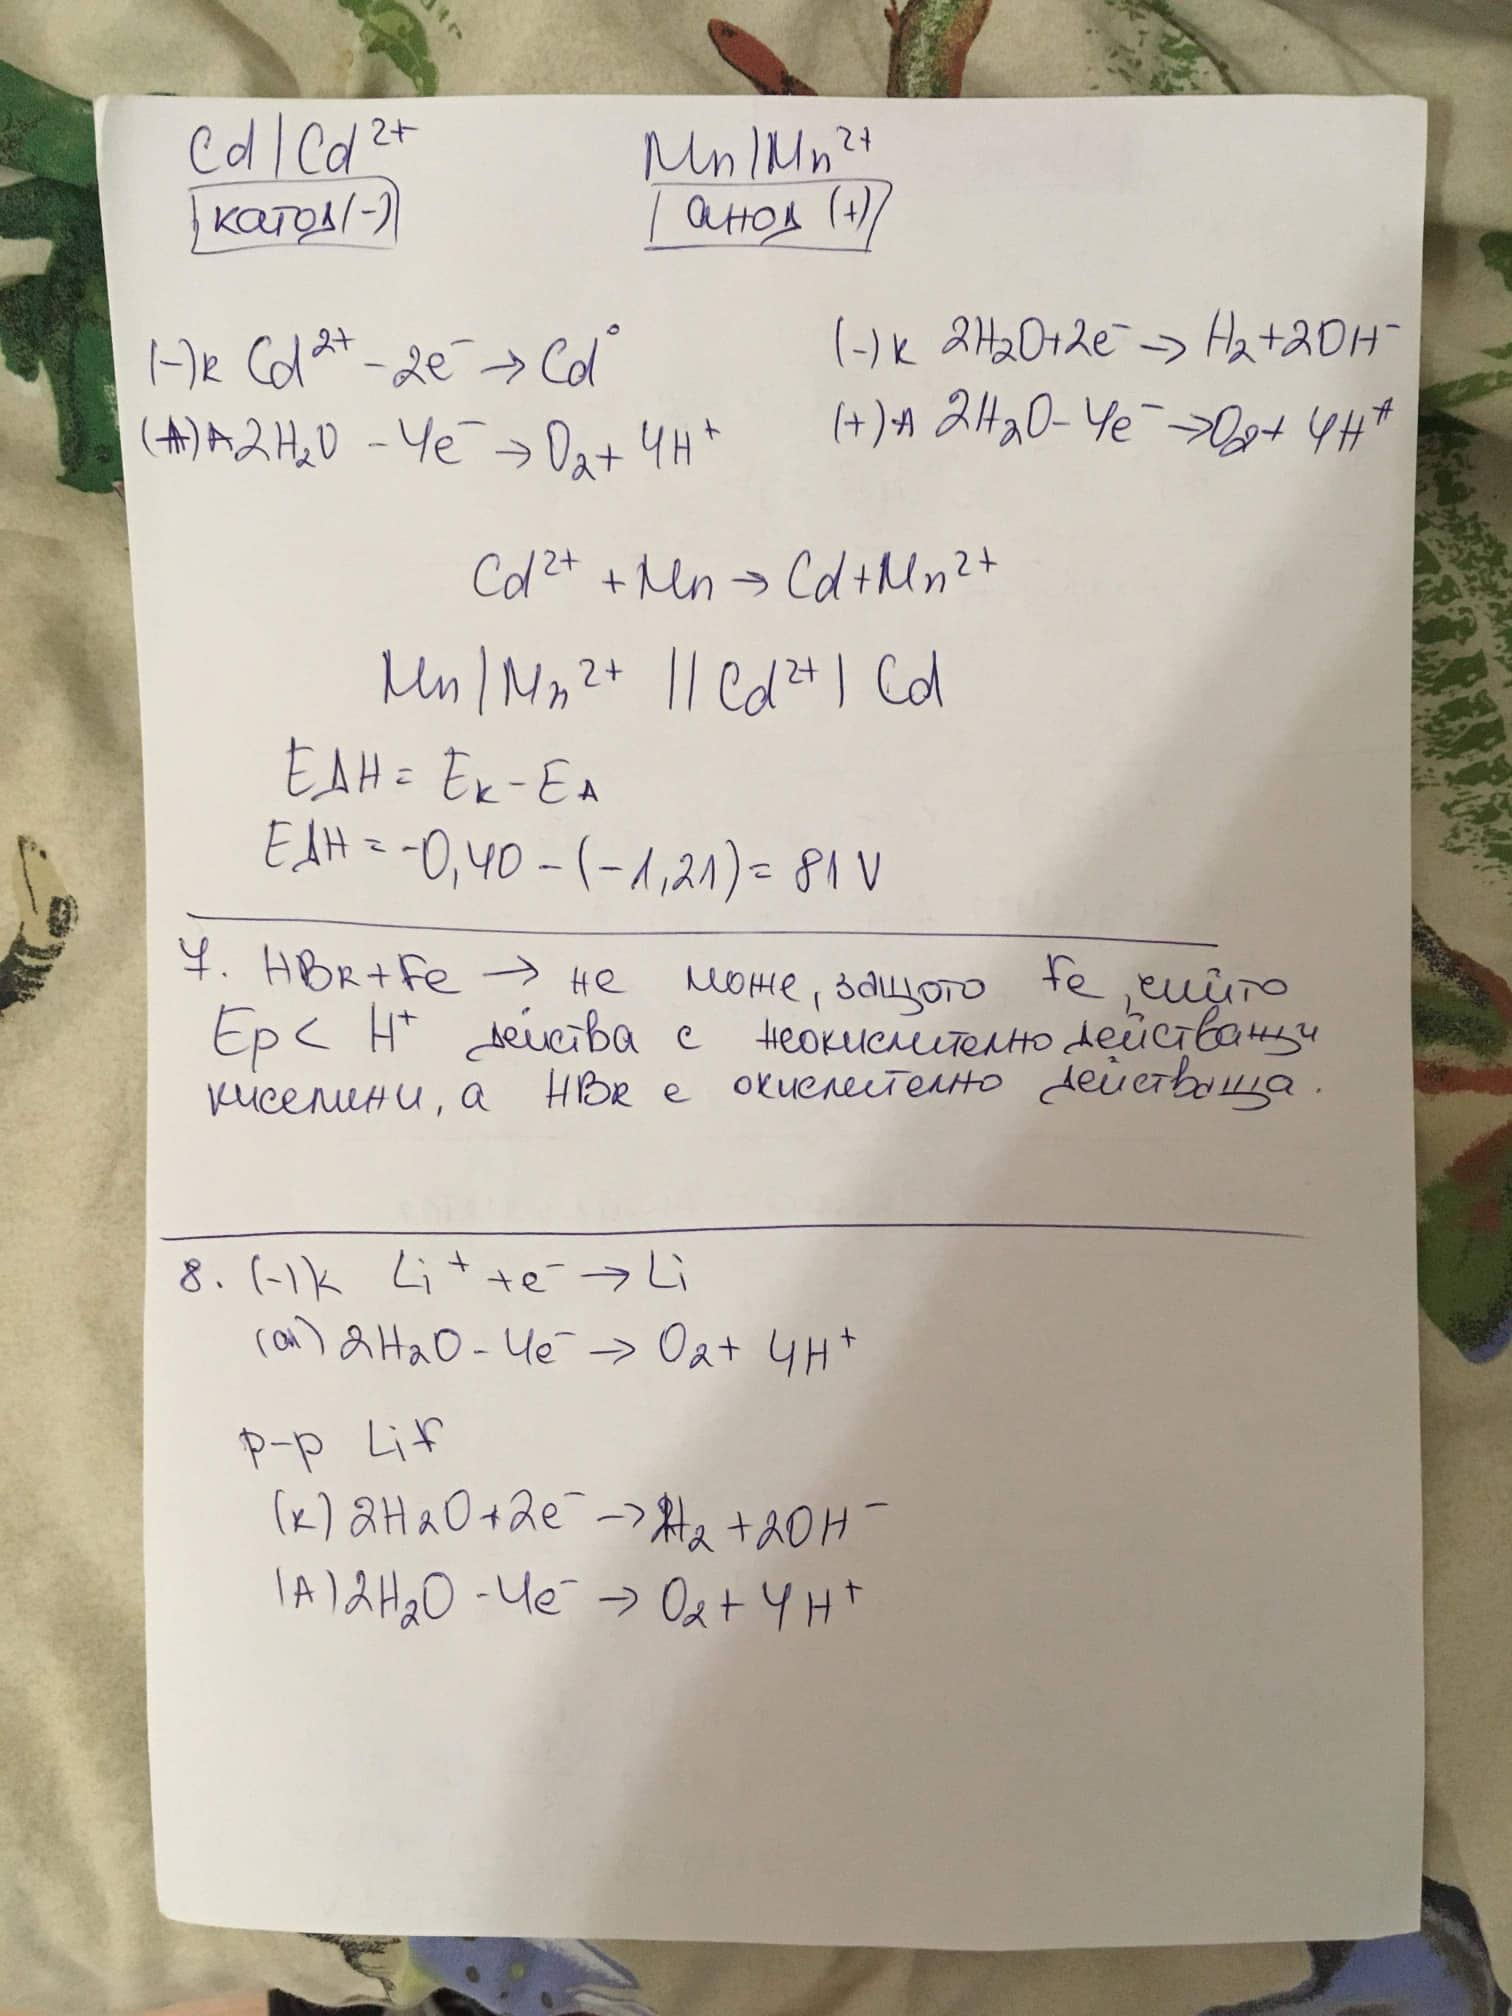 Cd|Cd²⁺ Mn|Mn²⁺
катод(-) анод (+)
(-)к Cd²⁺ - 2e⁻ → Cd° (-)к 2H₂O+2e⁻ → H₂+2OH⁻
(+)A 2H₂O - 4e⁻ → O₂+ 4H⁺ (+)A 2H₂O- 4e⁻ → O₂+ 4H⁺
Cd²⁺ + Mn → Cd+Mn²⁺
Mn|Mn²⁺ || Cd²⁺| Cd
ЕДН= Eк - EA
ЕДН = -0,40 - (-1,21)= 81 V
7. HBr+Fe → не може, защото Fe,
Ep< H⁺ действа с неокислително действащи
киселини, а HBr е окислително действаща.
8. (-)к Li⁺ +e⁻ → Li
(an) 2H₂O - 4e⁻ → O₂+ 4H⁺
р-р LiF
(к) 2H₂O+2e⁻ → H₂ +2OH⁻
(A) 2H₂O - 4e⁻ → O₂+ 4H⁺